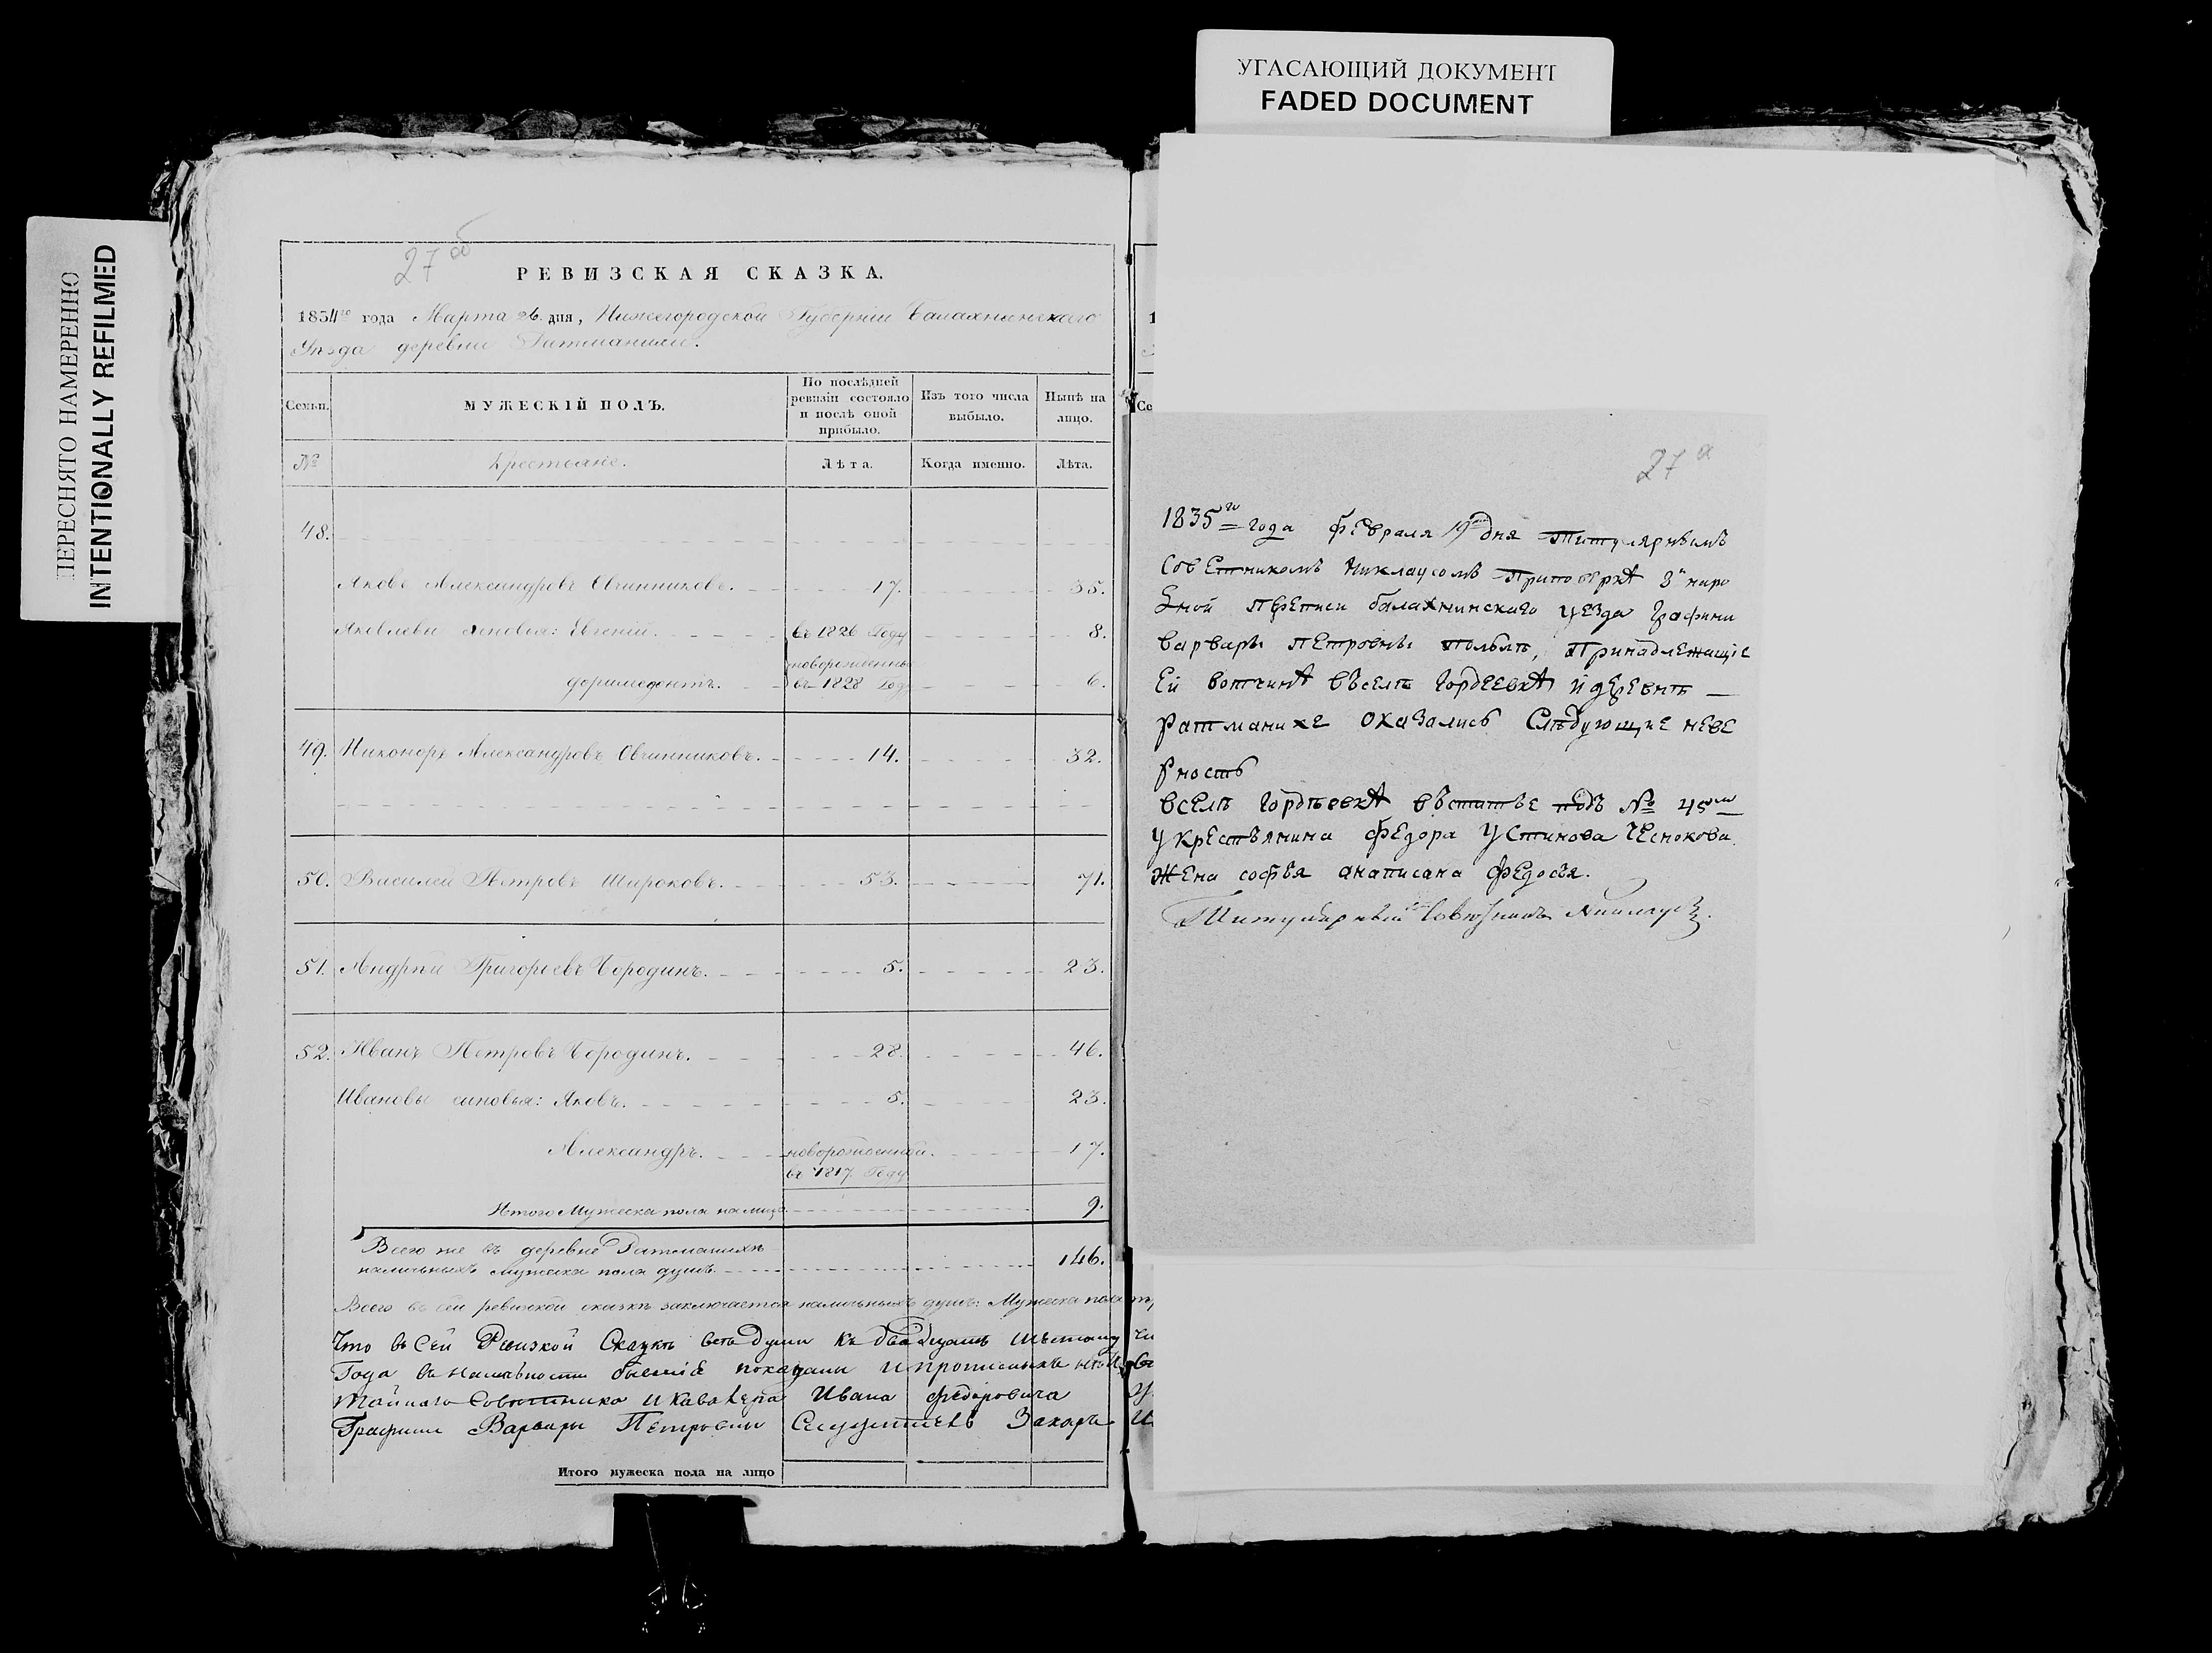 УГАСАЮЩИЙ ДОКУМЕНТ
FADED DOCUMENT
ПЕРЕСНЯТО НАМЕРЕННО
INTENTIONALLY REFILMED
27 об
РЕВИЗСКАЯ СКАЗКА.
1834го года Марта 26. дня, Нижегородской Губерніи Балахнинскаго
Уѣзда деревни Ратманихи.
Семьи.
МУЖЕСКІЙ ПОЛЪ.
По послѣдней ревизіи состояло и послѣ оной прибыло.
Изъ того числа выбыло.
Нынѣ на лицо.
№
Крестьяне.
Лѣта.
Когда именно.
Лѣта.
48.
Яковъ Александровъ Овчинниковъ. 17. 35.
Яковлевы сыновья: Евгеній. въ 1826 Году 8.
новорожденны
доримедонтъ. въ 1828 Год 6.
49. Никоноръ Александровъ Овчинниковъ. 14. 32.
50. Василей Петровъ Широковъ. 53. 71.
51. Андрей Григорьевъ Бородинъ. 5. 23.
52. Иванъ Петровъ Бородинъ. 28. 46.
Ивановы сыновья: Яковъ. 5. 23.
Александръ. новорожденной. 17.
въ 1817 Году
Итого Мужеска пола на лицо 9.
Всего же въ деревне Ратманихѣ
наличныхъ мужеска пола душъ. 146.
Всего въ сей ревизской сказкѣ заключается наличныхъ душъ: Мужеска пола
Что въ Сей Ревизской Сказкѣ всѣ души къ двадцать шѣстому
Года въ наличности показаны и прописныхъ
Тайнаго Совѣтника и Кавалера Ивана Федоровича
Графини Варвары Петровны Захаръ
Итого мужеска пола на лицо
27 а
1835го года Февраля 19 дня Титулярнымъ
Советникомъ Никлаусомъ Приповѣркѣ 8й наро
дной Переписи балахнинскаго уезда Графини
варвары Петровны, Принадлежащіе
Ей вотчинѣ въселѣ Гордеевкѣ и деревнѣ
Ратманихе оказались Слѣдующие неве
рность
вселѣ Гордѣевкѣ въстатье подъ № 45м
у крестьянина Федора Устинова Чеснокова
жена софья анаписана Федосья.
Титулярный Совѣтникъ Никлаусъ.